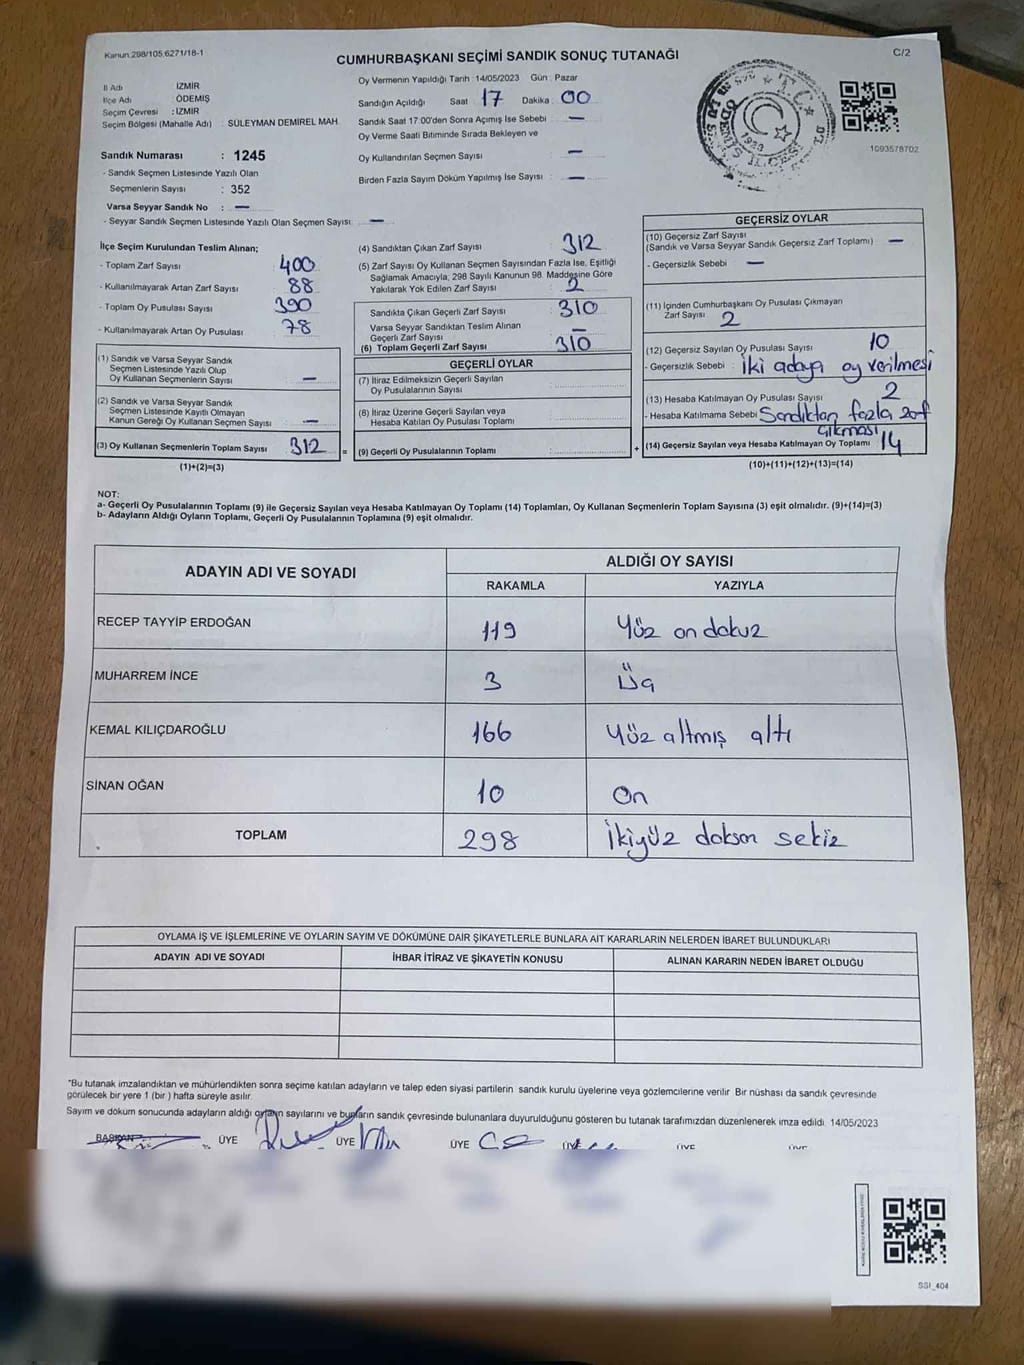 Kanun.298/105,6271/18-1
C/2
CUMHURBAŞKANI SEÇİMİ SANDIK SONUÇ TUTANAĞI
İl Adı : İZMİR
İlçe Adı : ÖDEMİŞ
Seçim Çevresi : İZMİR
Seçim Bölgesi (Mahalle Adı) : SÜLEYMAN DEMİREL MAH.
Sandık Numarası : 1245
- Sandık Seçmen Listesinde Yazılı Olan
Seçmenlerin Sayısı : 352
Varsa Seyyar Sandık No : —
- Seyyar Sandık Seçmen Listesinde Yazılı Olan Seçmen Sayısı: —
Oy Vermenin Yapıldığı Tarih : 14/05/2023 Gün : Pazar
Sandığın Açıldığı Saat : 17 Dakika : 00
Sandık Saat 17.00'den Sonra Açılmış İse Sebebi : —
Oy Verme Saati Bitiminde Sırada Bekleyen ve
Oy Kullandırılan Seçmen Sayısı : —
Birden Fazla Sayım Döküm Yapılmış İse Sayısı : —
1093578702
İlçe Seçim Kurulundan Teslim Alınan;
- Toplam Zarf Sayısı : 400
- Kullanılmayarak Artan Zarf Sayısı : 88
- Toplam Oy Pusulası Sayısı : 390
- Kullanılmayarak Artan Oy Pusulası : 78
(1) Sandık ve Varsa Seyyar Sandık
Seçmen Listesinde Yazılı Olup
Oy Kullanan Seçmenlerin Sayısı : —
(2) Sandık ve Varsa Seyyar Sandık
Seçmen Listesinde Kayıtlı Olmayan
Kanun Gereği Oy Kullanan Seçmen Sayısı : —
(3) Oy Kullanan Seçmenlerin Toplam Sayısı : 312
(1)+(2)=(3)
=
(4) Sandıktan Çıkan Zarf Sayısı : 312
(5) Zarf Sayısı Oy Kullanan Seçmen Sayısından Fazla İse, Eşitliği
Sağlamak Amacıyla, 298 Sayılı Kanunun 98. Maddesine Göre
Yakılarak Yok Edilen Zarf Sayısı : 2
Sandıkta Çıkan Geçerli Zarf Sayısı : 310
Varsa Seyyar Sandıktan Teslim Alınan
Geçerli Zarf Sayısı : —
(6) Toplam Geçerli Zarf Sayısı : 310
GEÇERLİ OYLAR
(7) İtiraz Edilmeksizin Geçerli Sayılan
Oy Pusulalarının Sayısı :
(8) İtiraz Üzerine Geçerli Sayılan veya
Hesaba Katılan Oy Pusulası Toplamı :
(9) Geçerli Oy Pusulalarının Toplamı :
+
GEÇERSİZ OYLAR
(10) Geçersiz Zarf Sayısı
(Sandık ve Varsa Seyyar Sandık Geçersiz Zarf Toplamı) : —
- Geçersizlik Sebebi : —
(11) İçinden Cumhurbaşkanı Oy Pusulası Çıkmayan
Zarf Sayısı : 2
(12) Geçersiz Sayılan Oy Pusulası Sayısı : 10
- Geçersizlik Sebebi : İki adaya oy verilmesi
(13) Hesaba Katılmayan Oy Pusulası Sayısı : 2
- Hesaba Katılmama Sebebi : Sandıktan fazla zarf
çıkması
(14) Geçersiz Sayılan veya Hesaba Katılmayan Oy Toplamı : 14
(10)+(11)+(12)+(13)=(14)
NOT:
a- Geçerli Oy Pusulalarının Toplamı (9) ile Geçersiz Sayılan veya Hesaba Katılmayan Oy Toplamı (14) Toplamları, Oy Kullanan Seçmenlerin Toplam Sayısına (3) eşit olmalıdır. (9)+(14)=(3)
b- Adayların Aldığı Oyların Toplamı, Geçerli Oy Pusulalarının Toplamına (9) eşit olmalıdır.
ADAYIN ADI VE SOYADI
ALDIĞI OY SAYISI
RAKAMLA YAZIYLA
RECEP TAYYİP ERDOĞAN 119 Yüz on dokuz
MUHARREM İNCE 3 Üç
KEMAL KILIÇDAROĞLU 166 Yüz altmış altı
SİNAN OĞAN 10 On
TOPLAM 298 İkiyüz doksan sekiz
OYLAMA İŞ VE İŞLEMLERİNE VE OYLARIN SAYIM VE DÖKÜMÜNE DAİR ŞİKAYETLERLE BUNLARA AİT KARARLARIN NELERDEN İBARET BULUNDUKLARI
ADAYIN ADI VE SOYADI İHBAR İTİRAZ VE ŞİKAYETİN KONUSU ALINAN KARARIN NEDEN İBARET OLDUĞU
*Bu tutanak imzalandıktan ve mühürlendikten sonra seçime katılan adayların ve talep eden siyasi partilerin sandık kurulu üyelerine veya gözlemcilerine verilir. Bir nüshası da sandık çevresinde
görülecek bir yere 1 (bir ) hafta süreyle asılır.
Sayım ve döküm sonucunda adayların aldığı oyların sayılarını ve bunların sandık çevresinde bulunanlara duyurulduğunu gösteren bu tutanak tarafımızdan düzenlenerek imza edildi. 14/05/2023
BAŞKAN ÜYE ÜYE ÜYE ÜYE ÜYE ÜYE
SSI_404